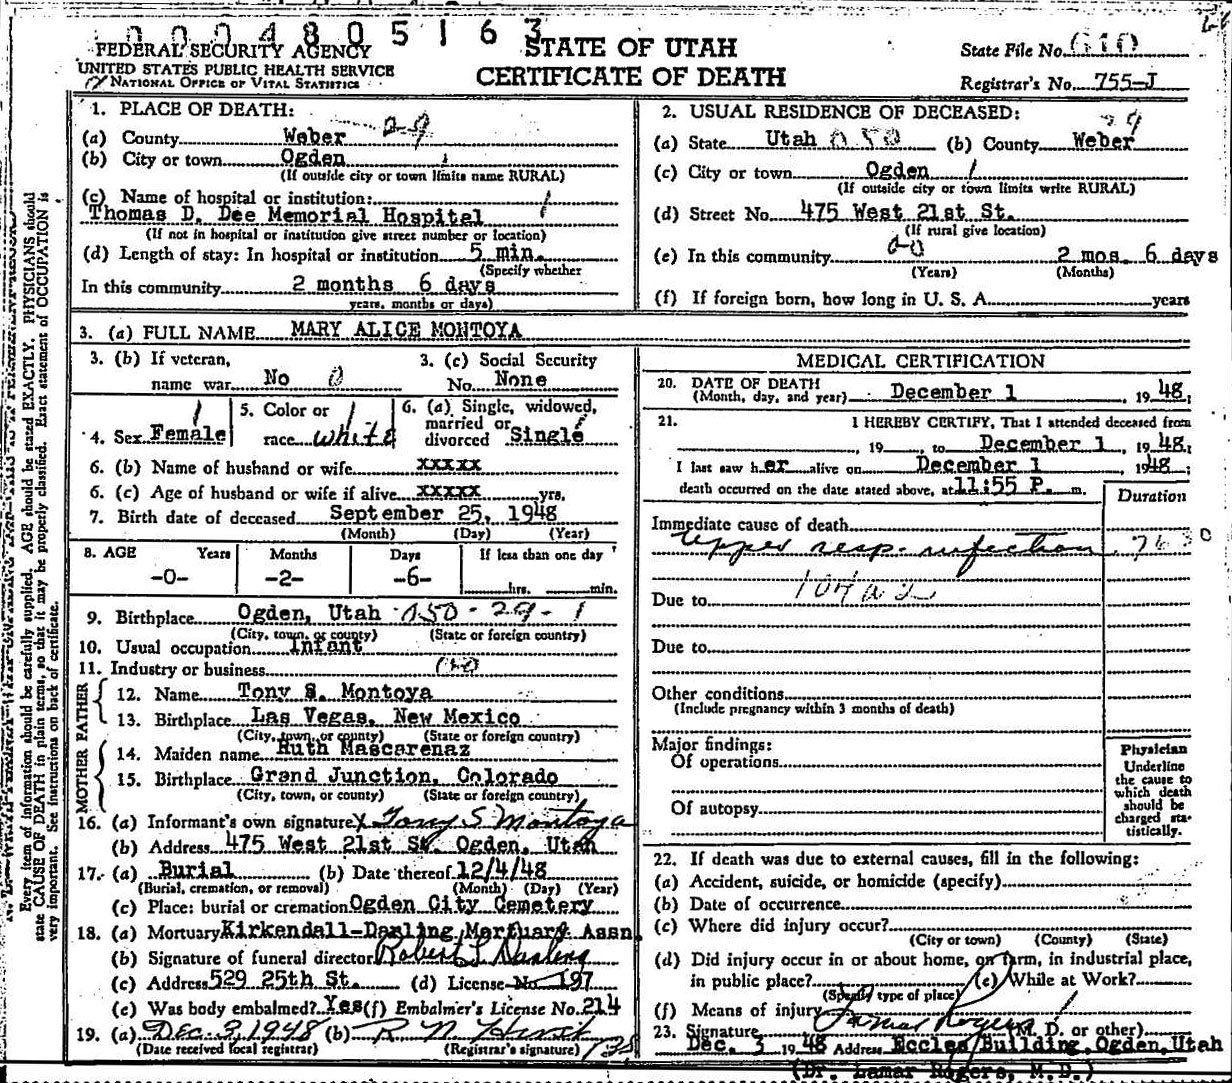 0004805163
FEDERAL SECURITY AGENCY
UNITED STATES PUBLIC HEALTH SERVICE
NATIONAL OFFICE OF VITAL STATISTICS
STATE OF UTAH
CERTIFICATE OF DEATH
State File No. 610
Registrar's No. 755-J
1. PLACE OF DEATH: 29
(a) County Weber
(b) City or town Ogden 1
(If outside city or town limits name RURAL)
(c) Name of hospital or institution: 1
Thomas D. Dee Memorial Hospital
(If not in hospital or institution give street number or location)
(d) Length of stay: In hospital or institution 5 min.
(Specify whether
In this community 2 months 6 days
years, months or days)
2. USUAL RESIDENCE OF DECEASED: 29
(a) State Utah 050 (b) County Weber
(c) City or town Ogden 1
(If outside city or town limits write RURAL)
(d) Street No. 475 West 21st St.
(If rural give location)
(e) In this community 00 2 mos. 6 days
(Years) (Months)
(f) If foreign born, how long in U. S. A. years
3. (a) FULL NAME MARY ALICE MONTOYA
3. (b) If veteran,
name war No 0
3. (c) Social Security
No. None
4. Sex Female 1
5. Color or
race white 1
6. (a) Single, widowed,
married or
divorced Single
6. (b) Name of husband or wife xxxxx
6. (c) Age of husband or wife if alive xxxxx yrs.
7. Birth date of deceased September 25, 1948
(Month) (Day) (Year)
8. AGE Years Months Days If less than one day
-0- -2- -6- hrs. min.
9. Birthplace Ogden, Utah 050-29-1
(City, town, or county) (State or foreign country)
10. Usual occupation Infant
11. Industry or business
FATHER
12. Name Tony S. Montoya
13. Birthplace Las Vegas, New Mexico
(City, town, or county) (State or foreign country)
MOTHER
14. Maiden name Ruth Mascarenaz
15. Birthplace Grand Junction, Colorado
(City, town, or county) (State or foreign country)
16. (a) Informant's own signature X Tony S Montoya
(b) Address 475 West 21st St. Ogden, Utah
17. (a) Burial (b) Date thereof 12/4/48
(Burial, cremation, or removal) (Month) (Day) (Year)
(c) Place: burial or cremation Ogden City Cemetery
18. (a) Mortuary Kirkendall-Darling Mortuary Assn.
(b) Signature of funeral director Robert L Darling
(c) Address 529 25th St. (d) License No. 197
(e) Was body embalmed? Yes (f) Embalmer's License No. 214
19. (a) Dec. 3, 1948 (b) R N Hirst 135
(Date received local registrar) (Registrar's signature)
MEDICAL CERTIFICATION
20. DATE OF DEATH
(Month, day, and year) December 1, 1948.
21. I HEREBY CERTIFY, That I attended deceased from
, 19 , to December 1, 1948.
I last saw her alive on December 1 1948;
death occurred on the date stated above, at 11:55 P. m.
Duration
Immediate cause of death
Upper resp. infection 7630
104a2
Due to
Due to
Other conditions
(Include pregnancy within 3 months of death)
Major findings:
Of operations
Of autopsy
Physician
Underline
the cause to
which death
should be
charged sta-
tistically.
22. If death was due to external causes, fill in the following:
(a) Accident, suicide, or homicide (specify)
(b) Date of occurrence
(c) Where did injury occur?
(City or town) (County) (State)
(d) Did injury occur in or about home, on farm, in industrial place,
in public place? (e) While at Work?
(Specify type of place)
(f) Means of injury
23. Signature Lamar Rogers (M. D. or other)
Dec. 3 1948 Address Eccles Building, Ogden, Utah
(Dr. Lamar Rogers, M.D.)
Every item of information should be carefully supplied. AGE should be stated EXACTLY. PHYSICIANS should
state CAUSE OF DEATH in plain terms, so that it may be properly classified. Exact statement of OCCUPATION is
very important. See instructions on back of certificate.